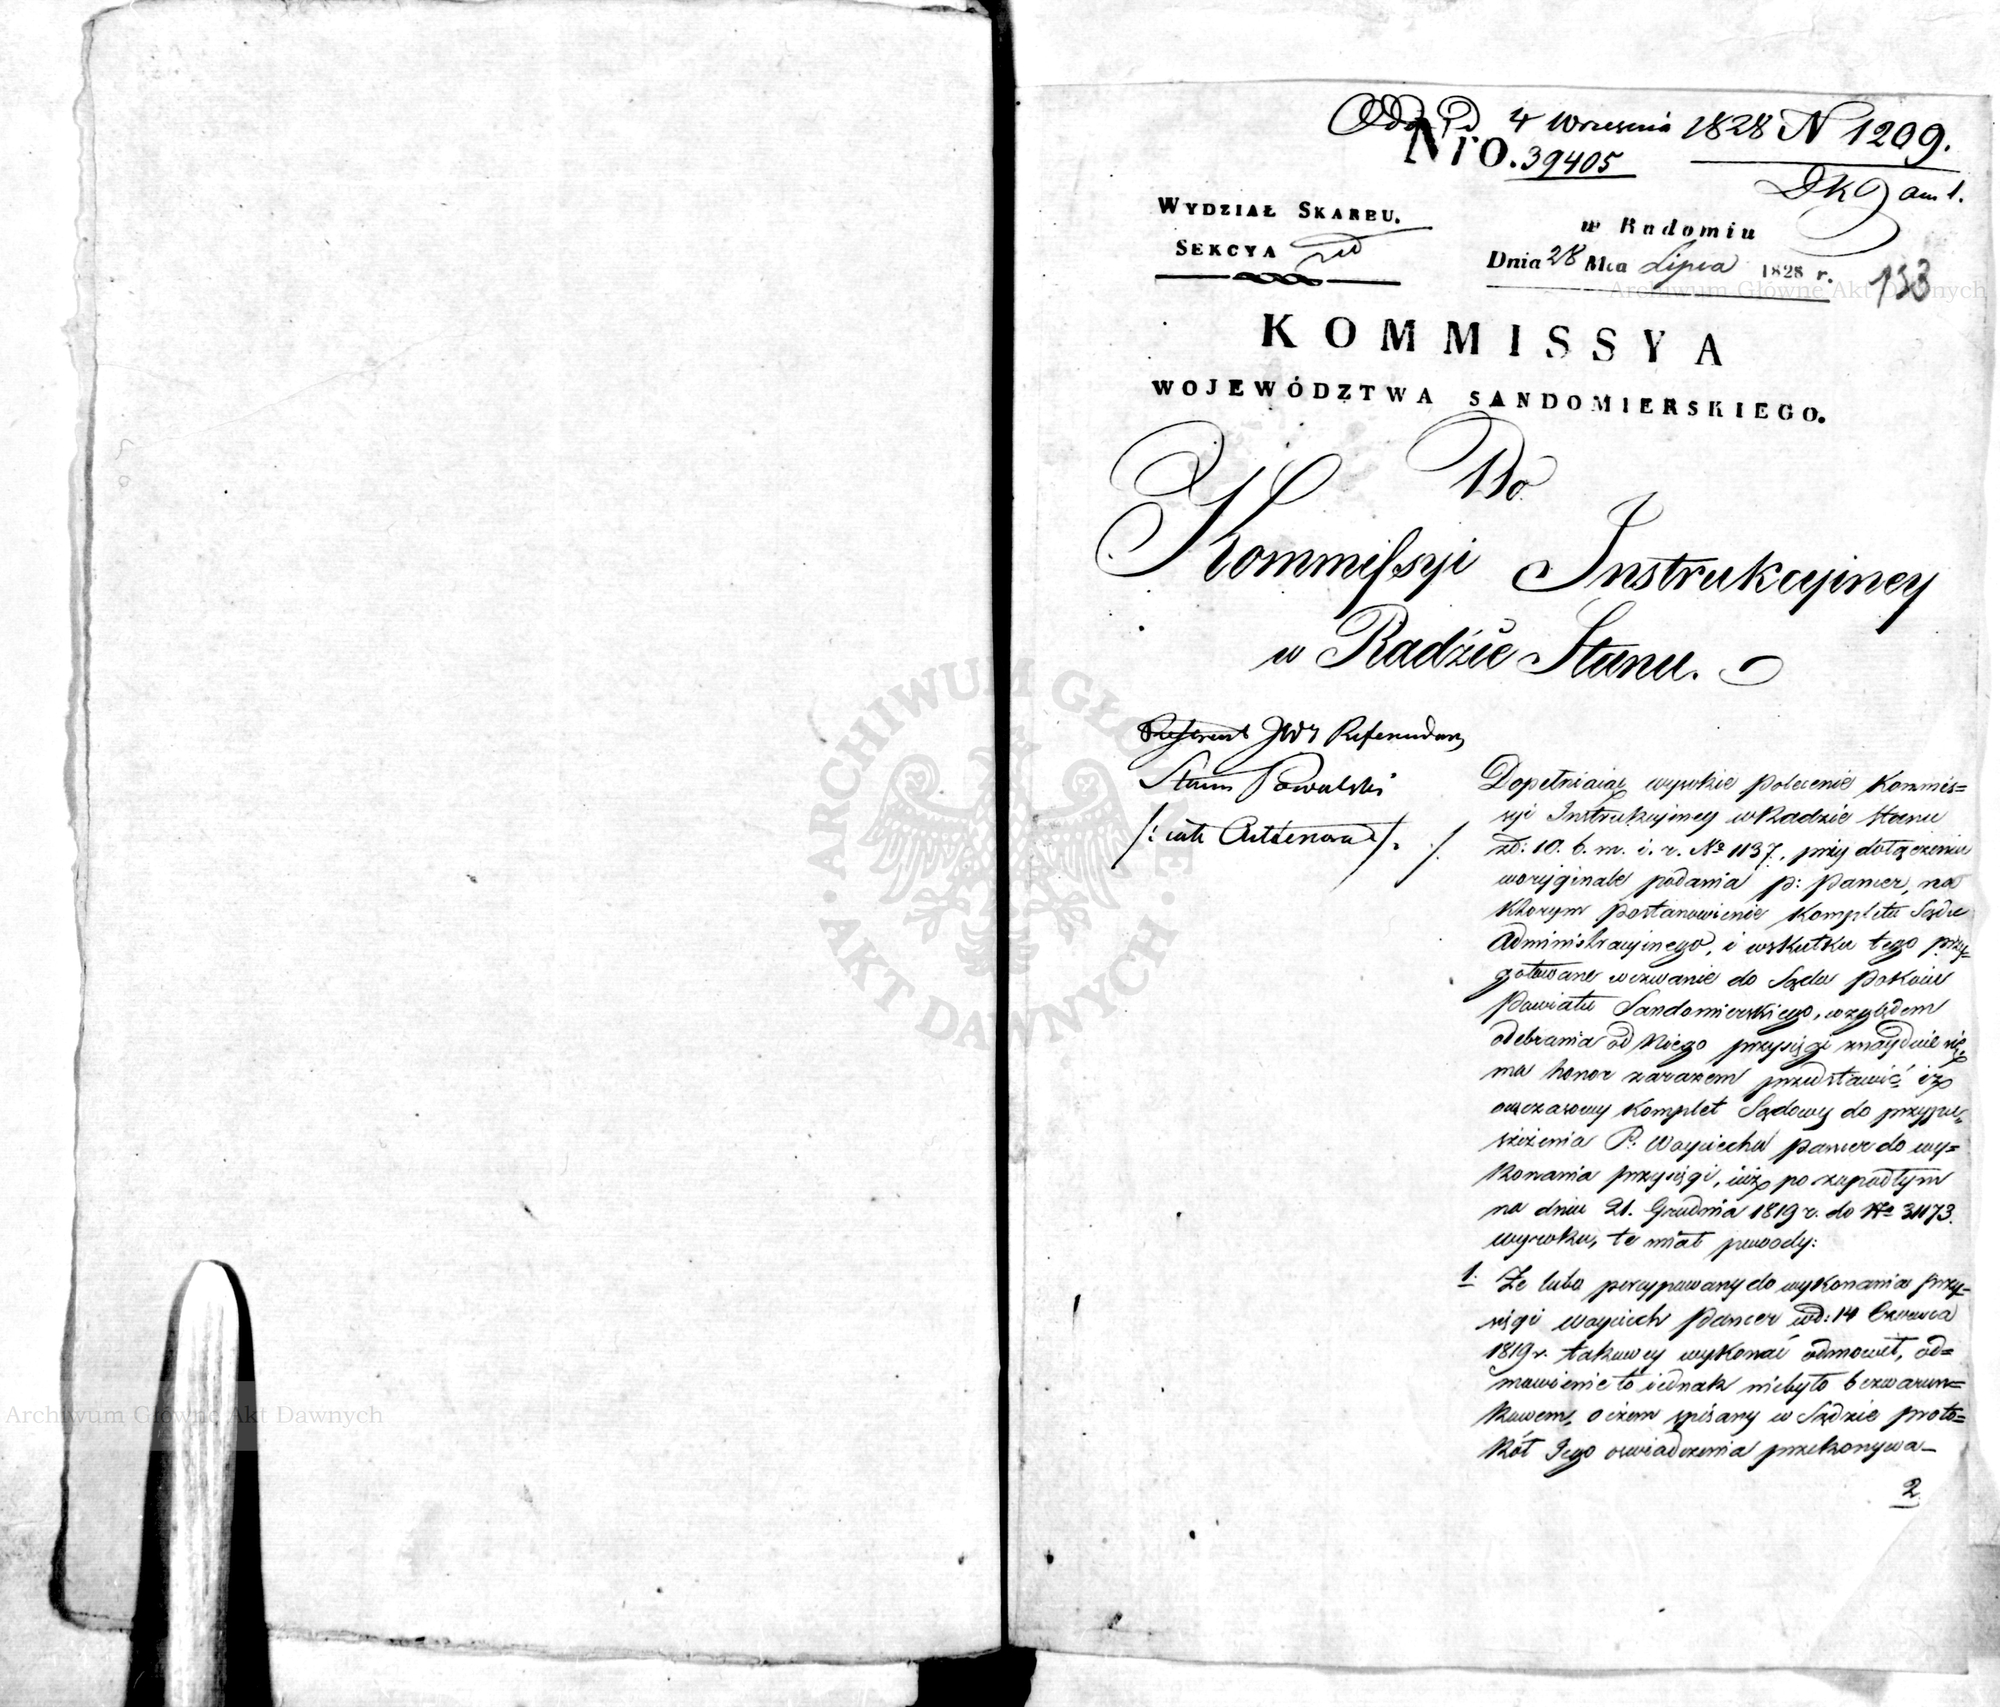 Odd. d 4 Września 1828 N 1209.
Nro. 39405
Dk am 1.
WYDZIAŁ SKARBU.
SEKCYA
w Radomiu
Dnia 28 Mca Lipca 1828 r.
193
KOMMISSYA
WOJEWÓDZTWA SANDOMIERSKIEGO.
Do
Kommissyi Instrukcyiney
w Radzie Stanu.
Referent JW Referendarz
Stanu Kowalski
/: :/.
Dopełniaiąc wysokie polecenie Kommis=
syi Instrukcyiney w Radzie Stanu
zd: 10. b. m. i. r. No 1137., przy dołączeniu
w oryginale podania p: Pancer, na
którym postanowienie kompletu Sądu
Administracyinego, i w skutku tego przy=
gotowane wezwanie do Sądu Pokoiu
Powiatu Sandomierskiego, względem
odebrania od Niego przysięgi znayduie się,
ma honor zarazem przedstawić, iż
owczasowy komplet Sądowy do przypu=
szczenia P. Woyciecha Pancer do wy=
konania przysięgi, iuż po zapadłym
na dniu 21. Grudnia 1819 r. do No 31173.
wyroku, te miał powody:
1. Że lubo do wykonania przy=
sięgi Woyciech Pancer wd: 14 Czerwca
1819 r. takowey wykonać odmówił, od=
mówienie to iednak niebyło bezwarun=
kowem, o czem spisany w Sądzie proto=
kół Jego oświadczenia przekonywa_
2
Archiwum Główne Akt Dawnych
Archiwum Główne Akt Dawnych
ARCHIWUM GŁÓWNE
AKT DAWNYCH